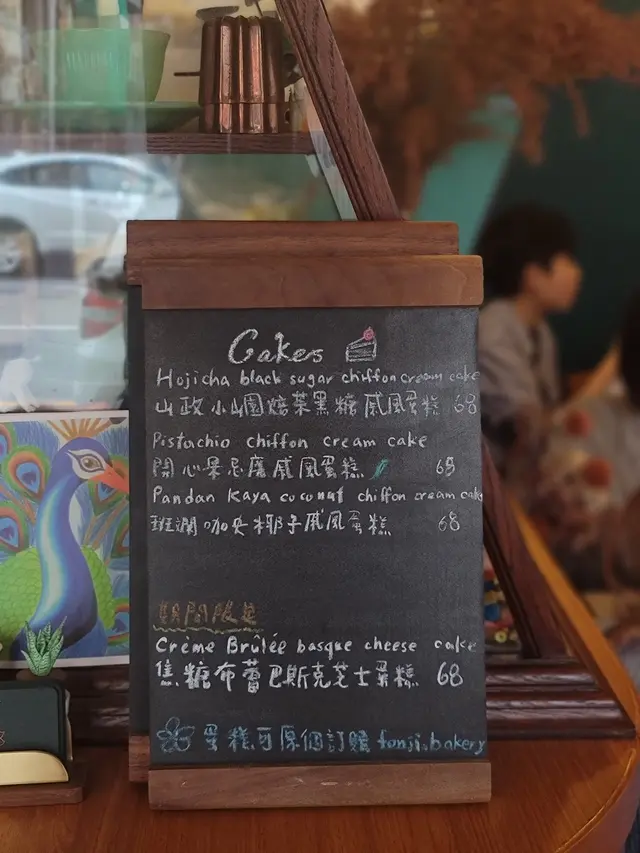 Cakes
Hojicha black sugar chiffon cream cake
山政小山園焙茶黑糖戚風蛋糕 68
Pistachio chiffon cream cake
開心果忌廉戚風蛋糕 65
Pandan Kaya coconut chiffon cream cake
班瀾咖央椰子戚風蛋糕 68
期間限定
Crème Brûlée basque cheese cake
焦糖布蕾巴斯克芝士蛋糕 68
蛋糕可原個訂購 fonji.bakery